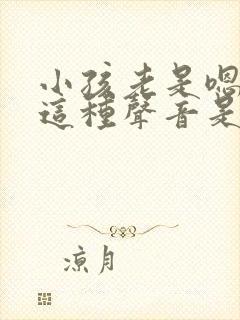 小孩老是嗯
這種聲音是
涼月